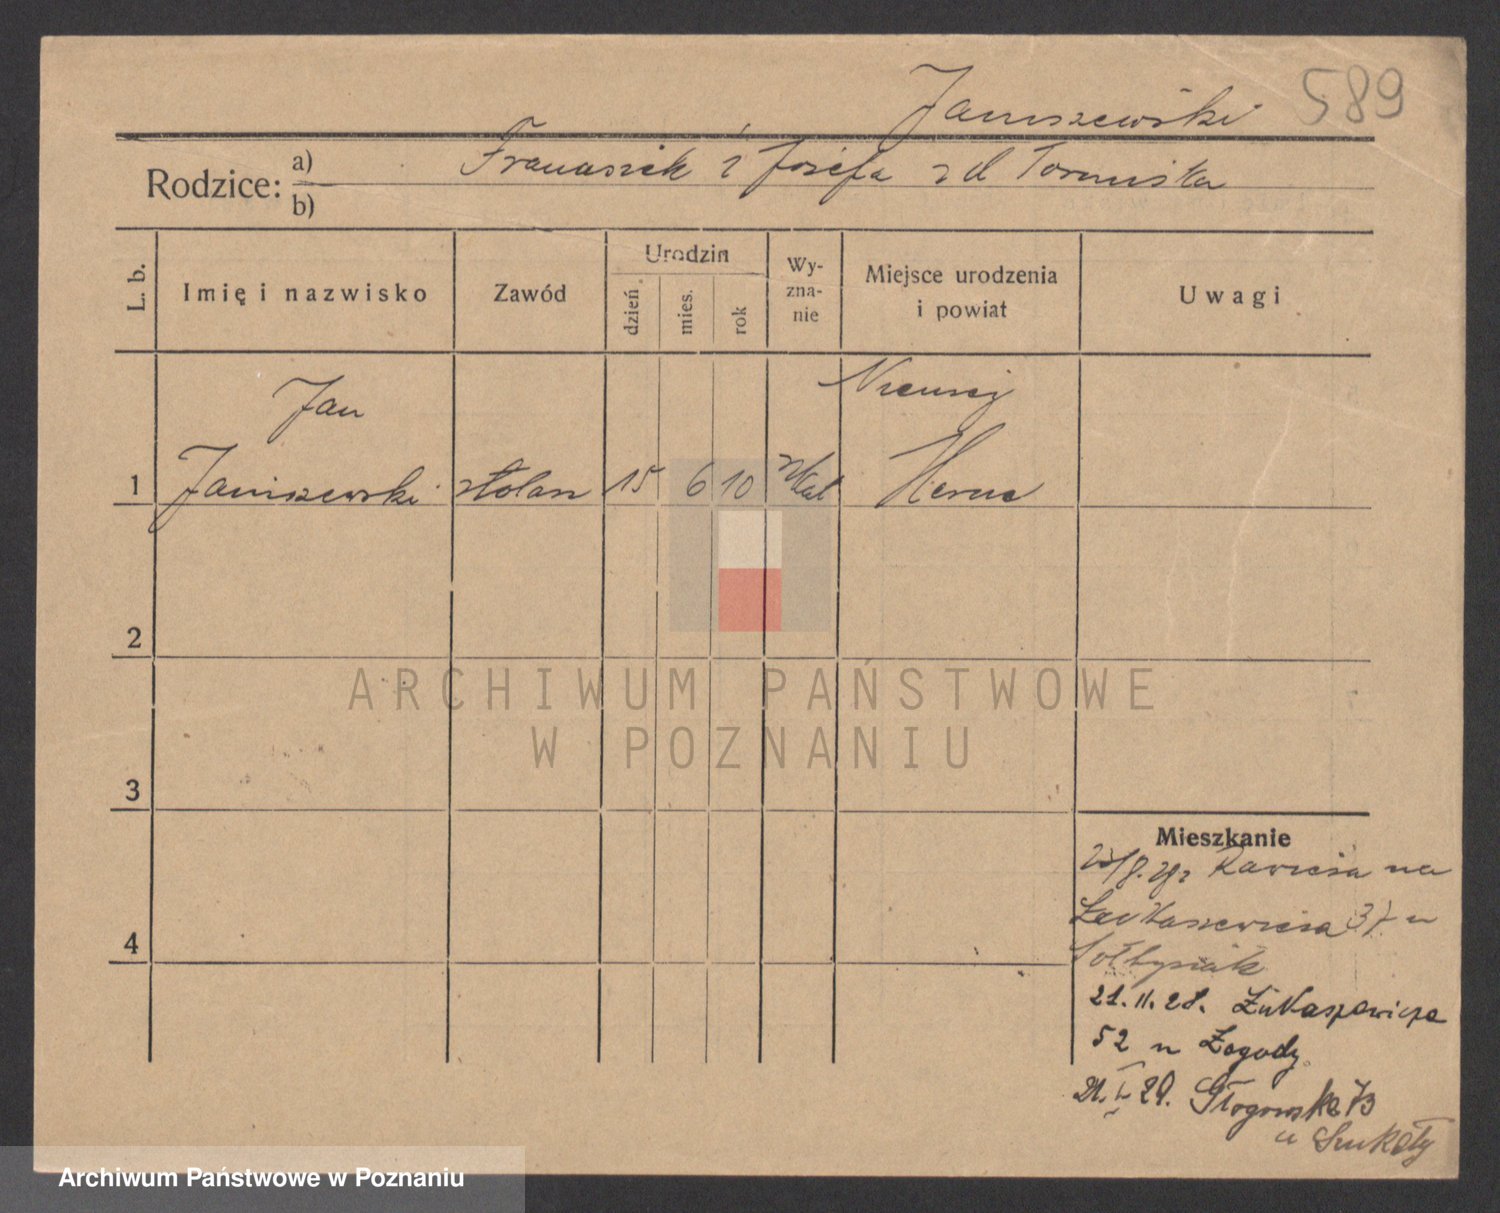 589
Janiszewski
Rodzice: a) Franciszek i Józefa z d Tormiska
b)
L. b.
Imię i nazwisko
Zawód
Urodzin
dzień
mies.
rok
Wy-
zna-
nie
Miejsce urodzenia
i powiat
Uwagi
Jan
Niemcy
1 Janiszewski stolarz 15 6 10 rzkat Herne
2
3
4
Mieszkanie
Rawicza na
Łukaszewicza 37 u
Sołtysiak
21.11.28. Łukaszewicza
52 u Zagody
21.I.29. Głogowska 73
u Szukały
ARCHIWUM PAŃSTWOWE
W POZNANIU
Archiwum Państwowe w Poznaniu